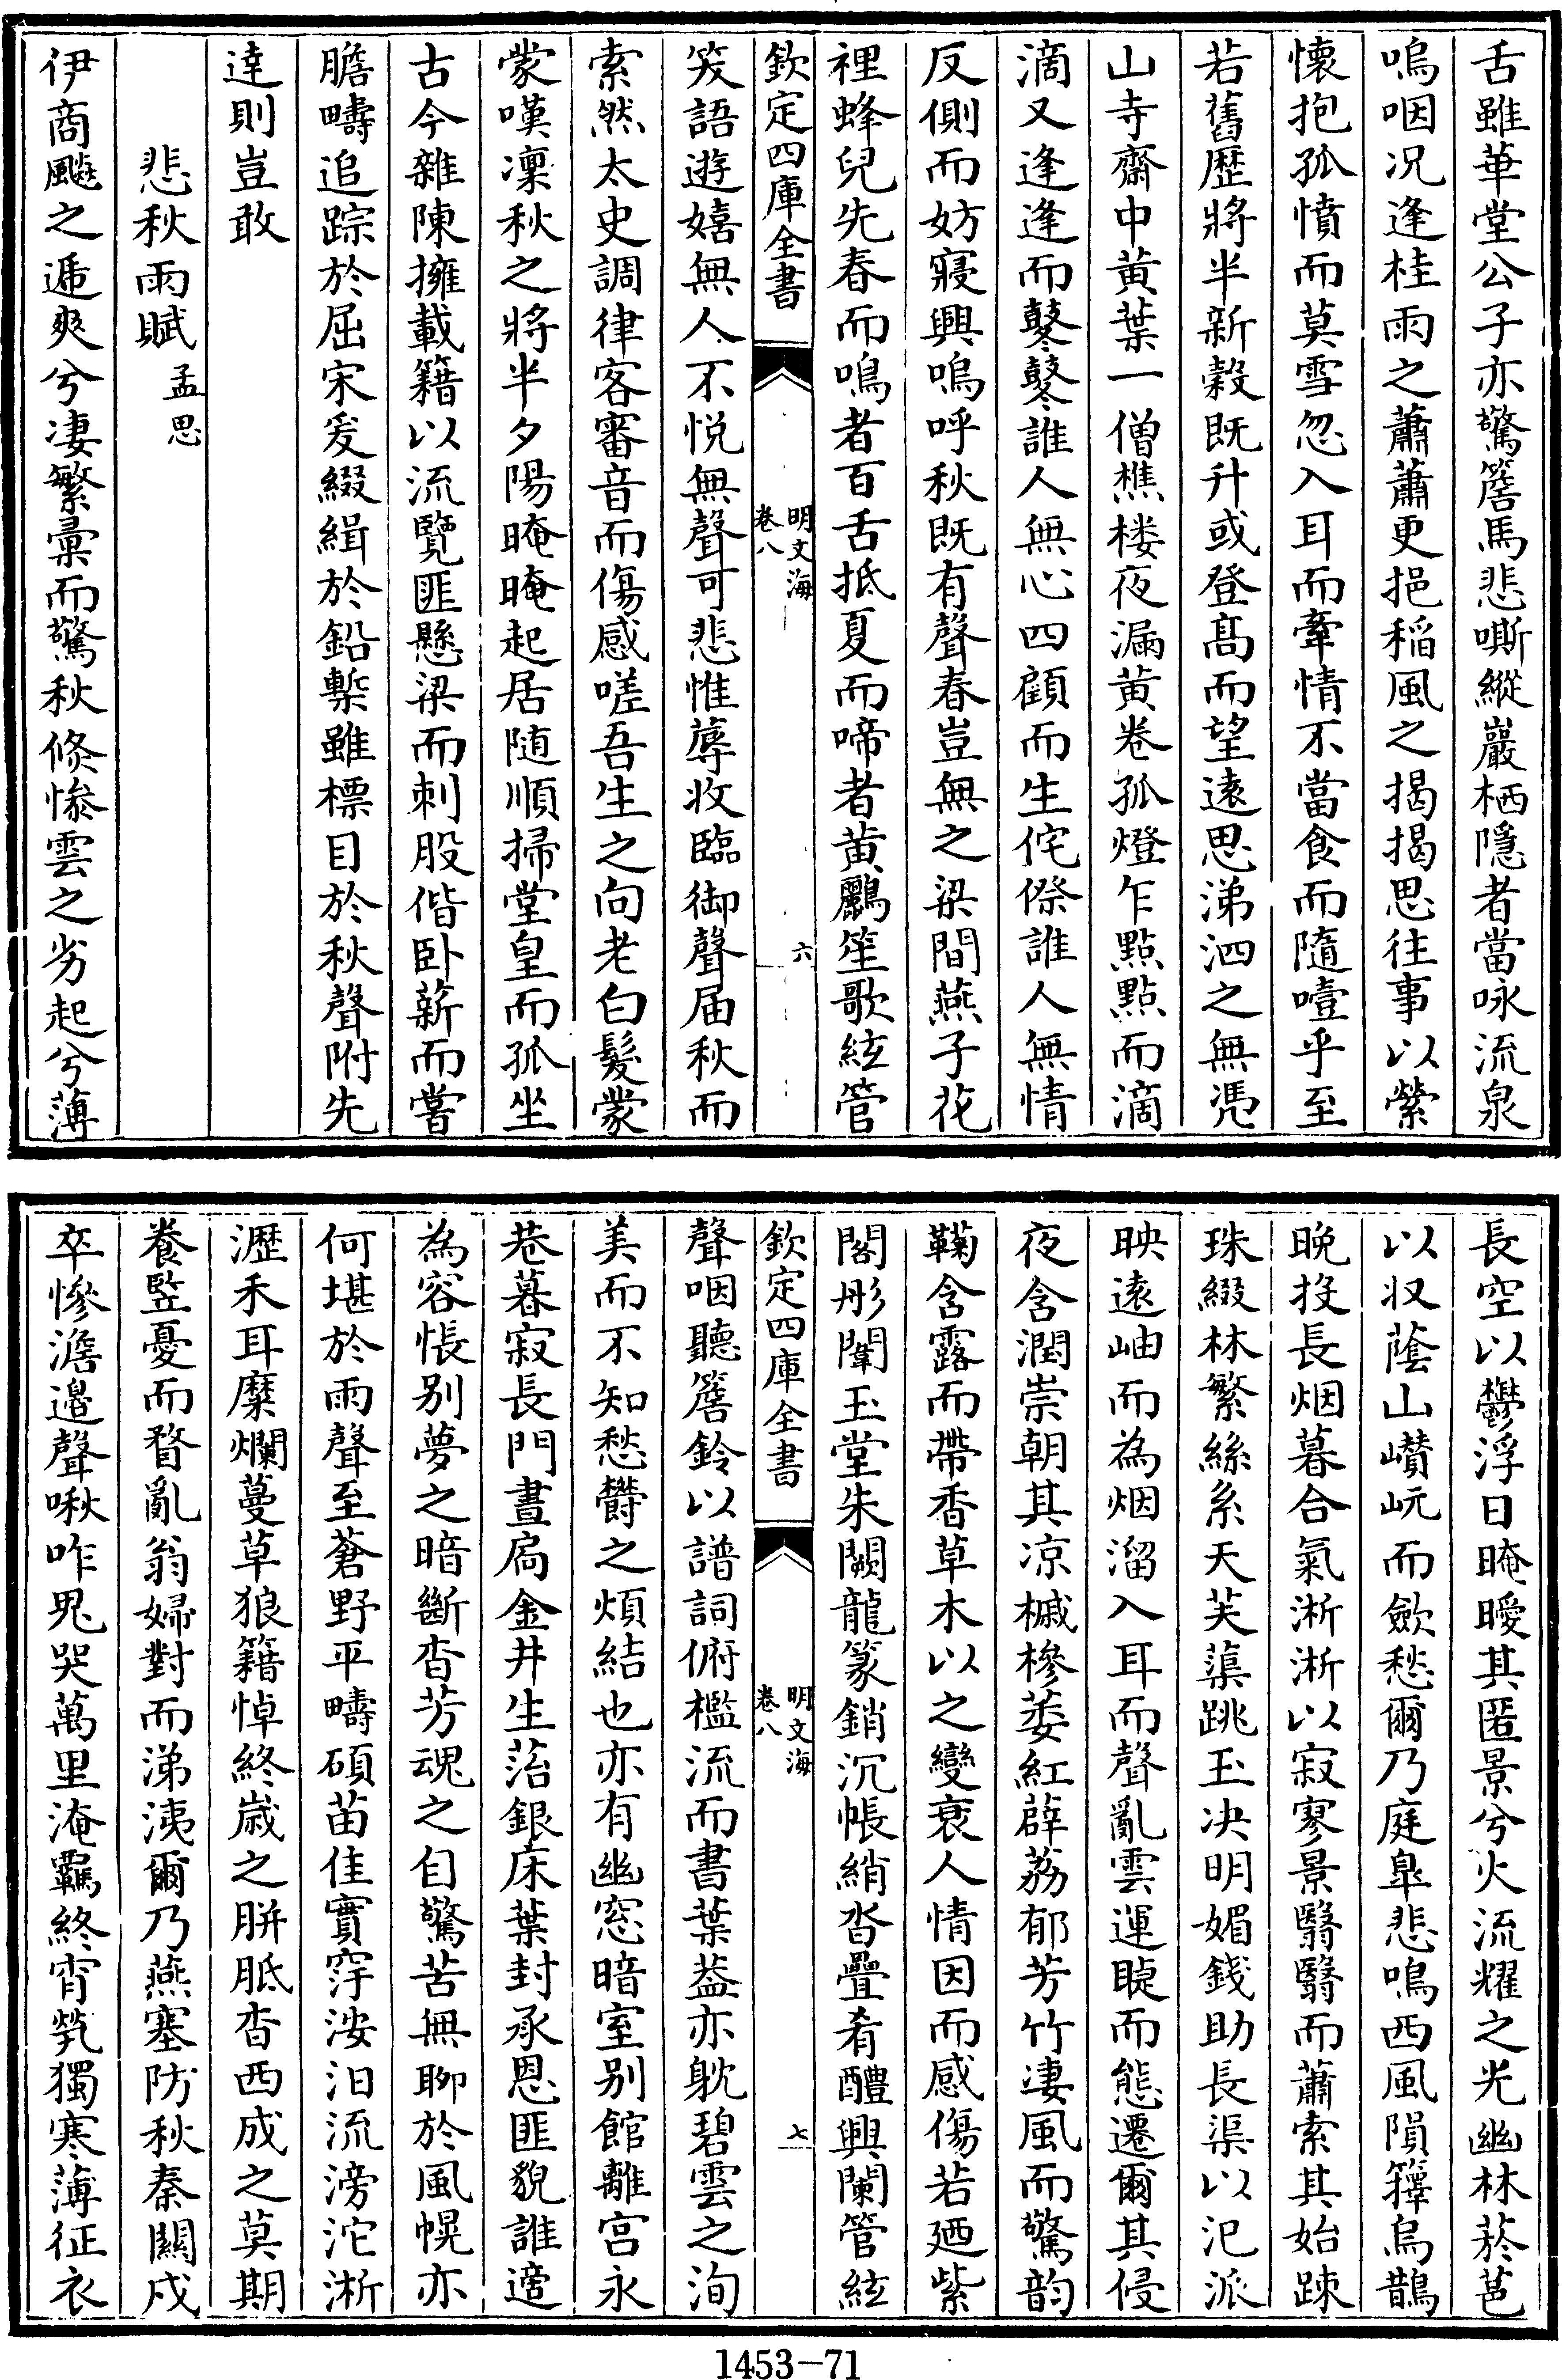 舌雖華堂公子亦驚簷馬悲嘶縱巖栖隱者當咏流泉
嗚咽况逢桂雨之蕭蕭更挹稻風之揭揭思往事以縈
懷抱孤憤而莫雪忽入耳而牽情不當食而隨噎乎至
若舊歷將半新穀既升或登髙而望逺思涕泗之無凴
山寺齋中黄葉一僧樵楼夜漏黄卷孤燈乍點點而滴
滴又逢逢而鼕鼕誰人無心四顧而生侘傺誰人無情
反側而妨寢興嗚呼秋既有聲春豈無之梁間燕子花
裡蜂兒先春而鳴者百舌抵夏而啼者黄鸝笙歌絃管
欽定四庫全書
明文海
卷八
六
笑語遊嬉無人不悦無聲可悲惟蓐收臨御聲届秋而
索然太史調律客審音而傷感嗟吾生之向老白髮蒙
蒙嘆凜秋之將半夕陽晻晻起居随順掃堂皇而孤坐
古今雜陳擁載籍以流覽匪懸梁而刺股偕卧薪而嘗
膽疇追踪於屈宋爰綴緝於鉛槧雖標目於秋聲附先
達則豈敢
悲秋雨賦
孟思
伊商飈之遞爽兮凄繁彙而驚秋倏慘雲之劣起兮薄
長空以鬱浮日晻曖其匿景兮火流耀之光幽林菸邑
以収蔭山巑岏而歛愁爾乃庭臯悲鳴西風隕籜烏鵲
晚投長烟暮合氣淅淅以寂寥景翳翳而蕭索其始踈
珠綴林繁絲系天芙蕖跳玉决明媚錢助長渠以氾派
映逺岫而為烟溜入耳而聲亂雲運睫而態遷爾其侵
夜含潤崇朝其凉槭槮萎紅薜荔郁芳竹凄風而驚韵
鞠含露而帶香草木以之變衰人情因而感傷若廼紫
閣彤闈玉堂朱闕龍篆銷沉帳綃沓疊肴醴興闌管絃
欽定四庫全書
明文海
卷八
七
聲咽聽簷鈴以譜詞俯檻流而書葉葢亦躭碧雲之洵
美而不知愁欝之煩結也亦有幽窓暗室别館離宫永
巷暮寂長門晝扃金井生菭銀床葉封承恩匪貌誰適
為容悵别夢之暗斷杳芳魂之自驚苦無聊於風幌亦
何堪於雨聲至蒼野平疇碩苗佳實窏洝汨流滂沱淅
瀝禾耳糜爛蔓草狼籍悼終嵗之胼胝杳西成之莫期
養監憂而瞀亂翁婦對而涕洟爾乃燕塞防秋秦關戍
卒慘澹邉聲啾咋鬼哭萬里淹羈終宵煢獨寒薄征衣
1453-71